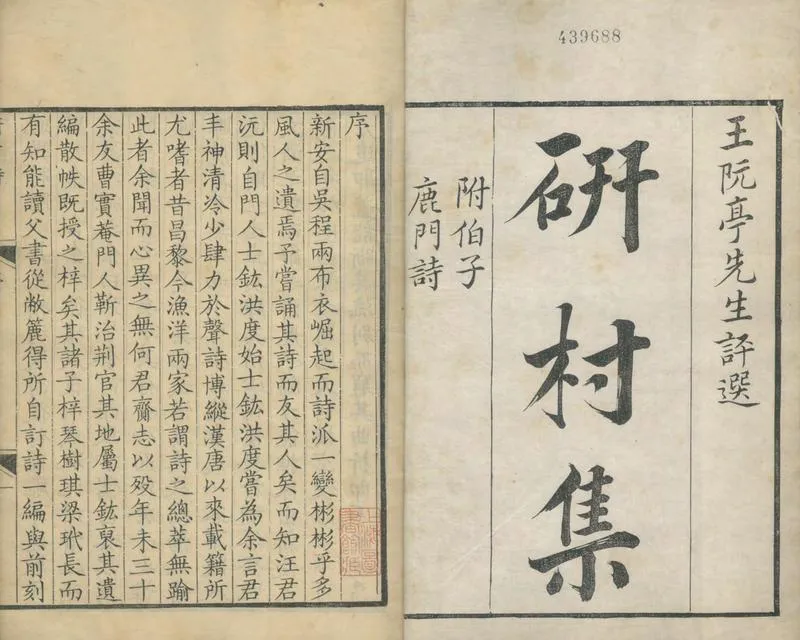 439688
王阮亭先生評選
研村集
附伯子
鹿門詩
序
新安自吳程兩布衣崛起而詩派一變彬彬乎多
風人之遺焉予嘗誦其詩而友其人矣而知汪君
沅則自門人士鈜洪度始士鈜洪度嘗為余言君
丰神清冷少肆力於聲詩博縱漢唐以來載籍所
尤嗜者昔昌黎今漁洋兩家若謂詩之總萃無踰
此者余聞而心異之無何君齎志以歿年未三十
余友曹實菴門人靳治荊官其地屬士鈜裒其遺
編散帙既授之梓矣其諸子梓琴樹琪梁玳長而
有知能讀父書從敝簏得所自訂詩一編與前刻